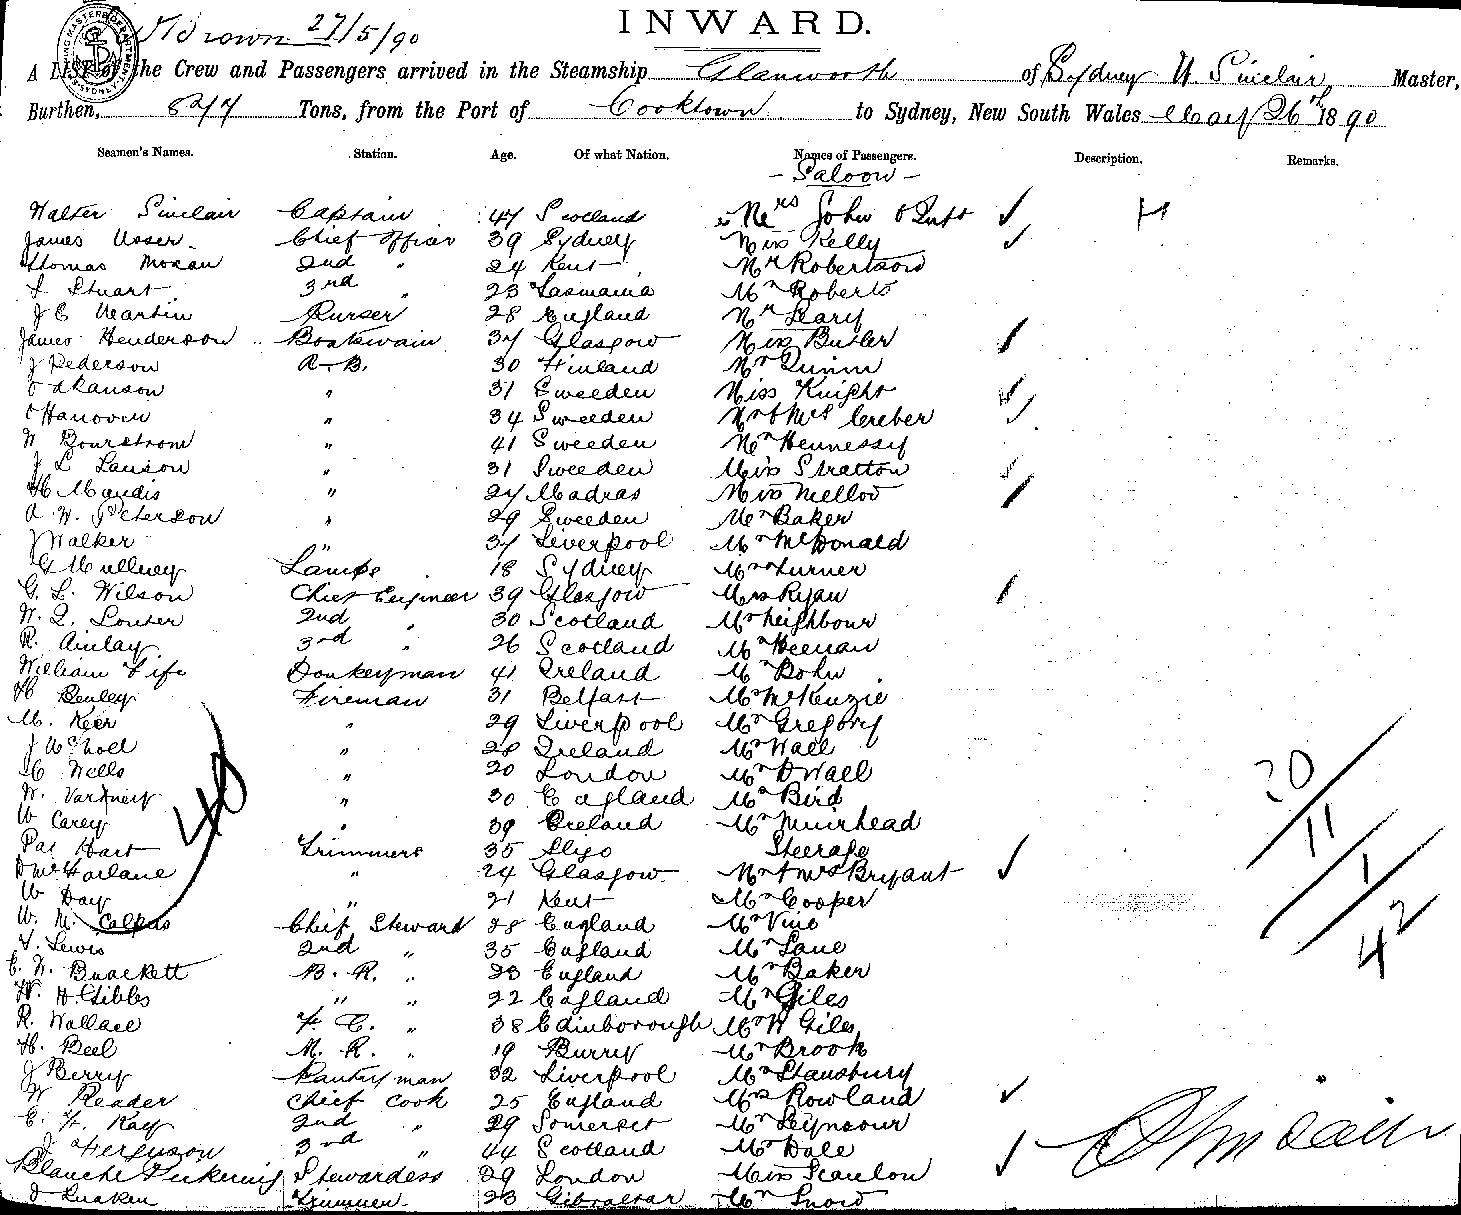 Brown 27/5/90
INWARD.
A LIST of the Crew and Passengers arrived in the Steamship Glanworth of Sydney W. Sinclair, Master,
Burthen, 827 Tons, from the Port of Cooktown to Sydney, New South Wales May 26th 1890
Seamen's Names. Station. Age. Of what Nation. Names of Passengers. Description. Remarks.
- Saloon -
Walter Sinclair Captain 47 Scotland Mrs John
James Usser Chief Officer 39 Sydney Miss Kelly
Thomas Moran 2nd " 24 Kent Mr Robertson
Stuart 3rd " 23 Tasmania Mr Roberts
J C Martin Purser 28 England Mr Leary
James Henderson Boatswain 37 Glasgow Miss Butler
J Pederson A-B. 30 Finland Mr Quinn
" 31 Sweeden Miss Knight
Hanoven " 34 Sweeden Mr & Mrs Creber
W Bourstrom " 41 Sweeden Mr Hennessy
J L Lauson " 31 Sweeden Miss Stratton
" 27 Madras Miss Mellor
A. W. Peterson " 29 Sweeden Mr Baker
J Walker " 37 Liverpool Mr McDonald
G Mullney Lamps 18 Sydney Mr Turner
G. L. Wilson Chief Engineer 39 Glasgow Mrs Ryan
2nd " 30 Scotland Mr Neighbour
R. Ainlay 3rd " 26 Scotland Mr Heenan
William Fife Donkeyman 41 Ireland Mr Bohn
H Benley Fireman 31 Belfast Mr McKenzie
M. Keer " 29 Liverpool Mr Gregory
" 28 Ireland Mr Wall
Wells " 20 London Mr D Wall
W. " 30 England Mr Bird
W Carey " 39 Ireland Mr Muirhead
Pat Hart Trimmers 35 Sligo Steerage
D McFarlane " 24 Glasgow Mr & Mrs Bryant
W Day " 21 Kent Mr Cooper
W. M. Chief Steward 28 England Mr Vine
Lewis 2nd " 35 England Mr Lane
C. W. Brackett B. R. " 23 England Mr Baker
W. H Gibbs " " 22 England Mr Giles
R. Wallace F. C. " 38 Edinborough Mr W Giles
H. Beel M. R. " 19 Burry Mr Brook
J Berry Pantryman 32 Liverpool Mr Stansbury
W Reader Chief Cook 25 England Mrs Rowland
C. H. Kay 2nd " 29 Somerset Mr Seymour
J Ferguson 3rd " 44 Scotland Mr Dale
Blanche Pickering Stewardess 29 London Miss Scanlon
Trimmer 23 Gibraltar Mr Snow
40
20
11
1
42